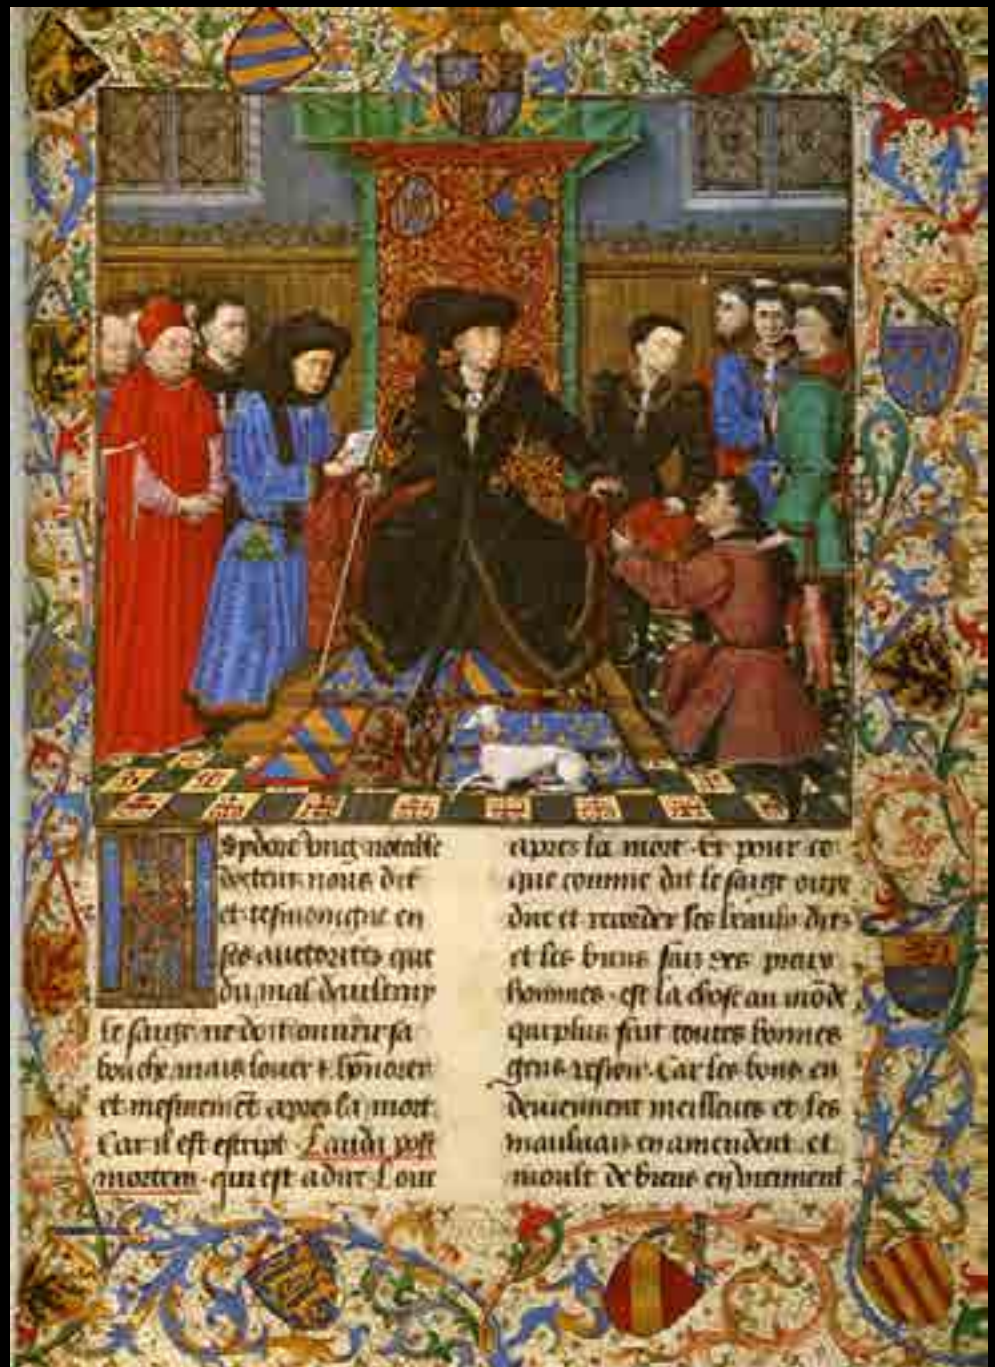 Ysydore vng notable
docteur nous dit
et tesmoingne en
ses auctorites que
du mal daultruy
le saige ne doit ouurir sa
bouche mais louer & honnorer
et mesmemēt apres la mort
Car il est escript . Lauda post
mortem . qui est a dire Loue
apres la mort . Et pour ce
que comme dit le saige oyr
dire et recorder les beaulx dis
et les biens fais des preux
hommes . est la chose au mōde
qui plus fait toutes bonnes
gens resioir . Car les bons en
deuiennent meilleurs et les
mauluais en amendent . et
moult de biens en viennent